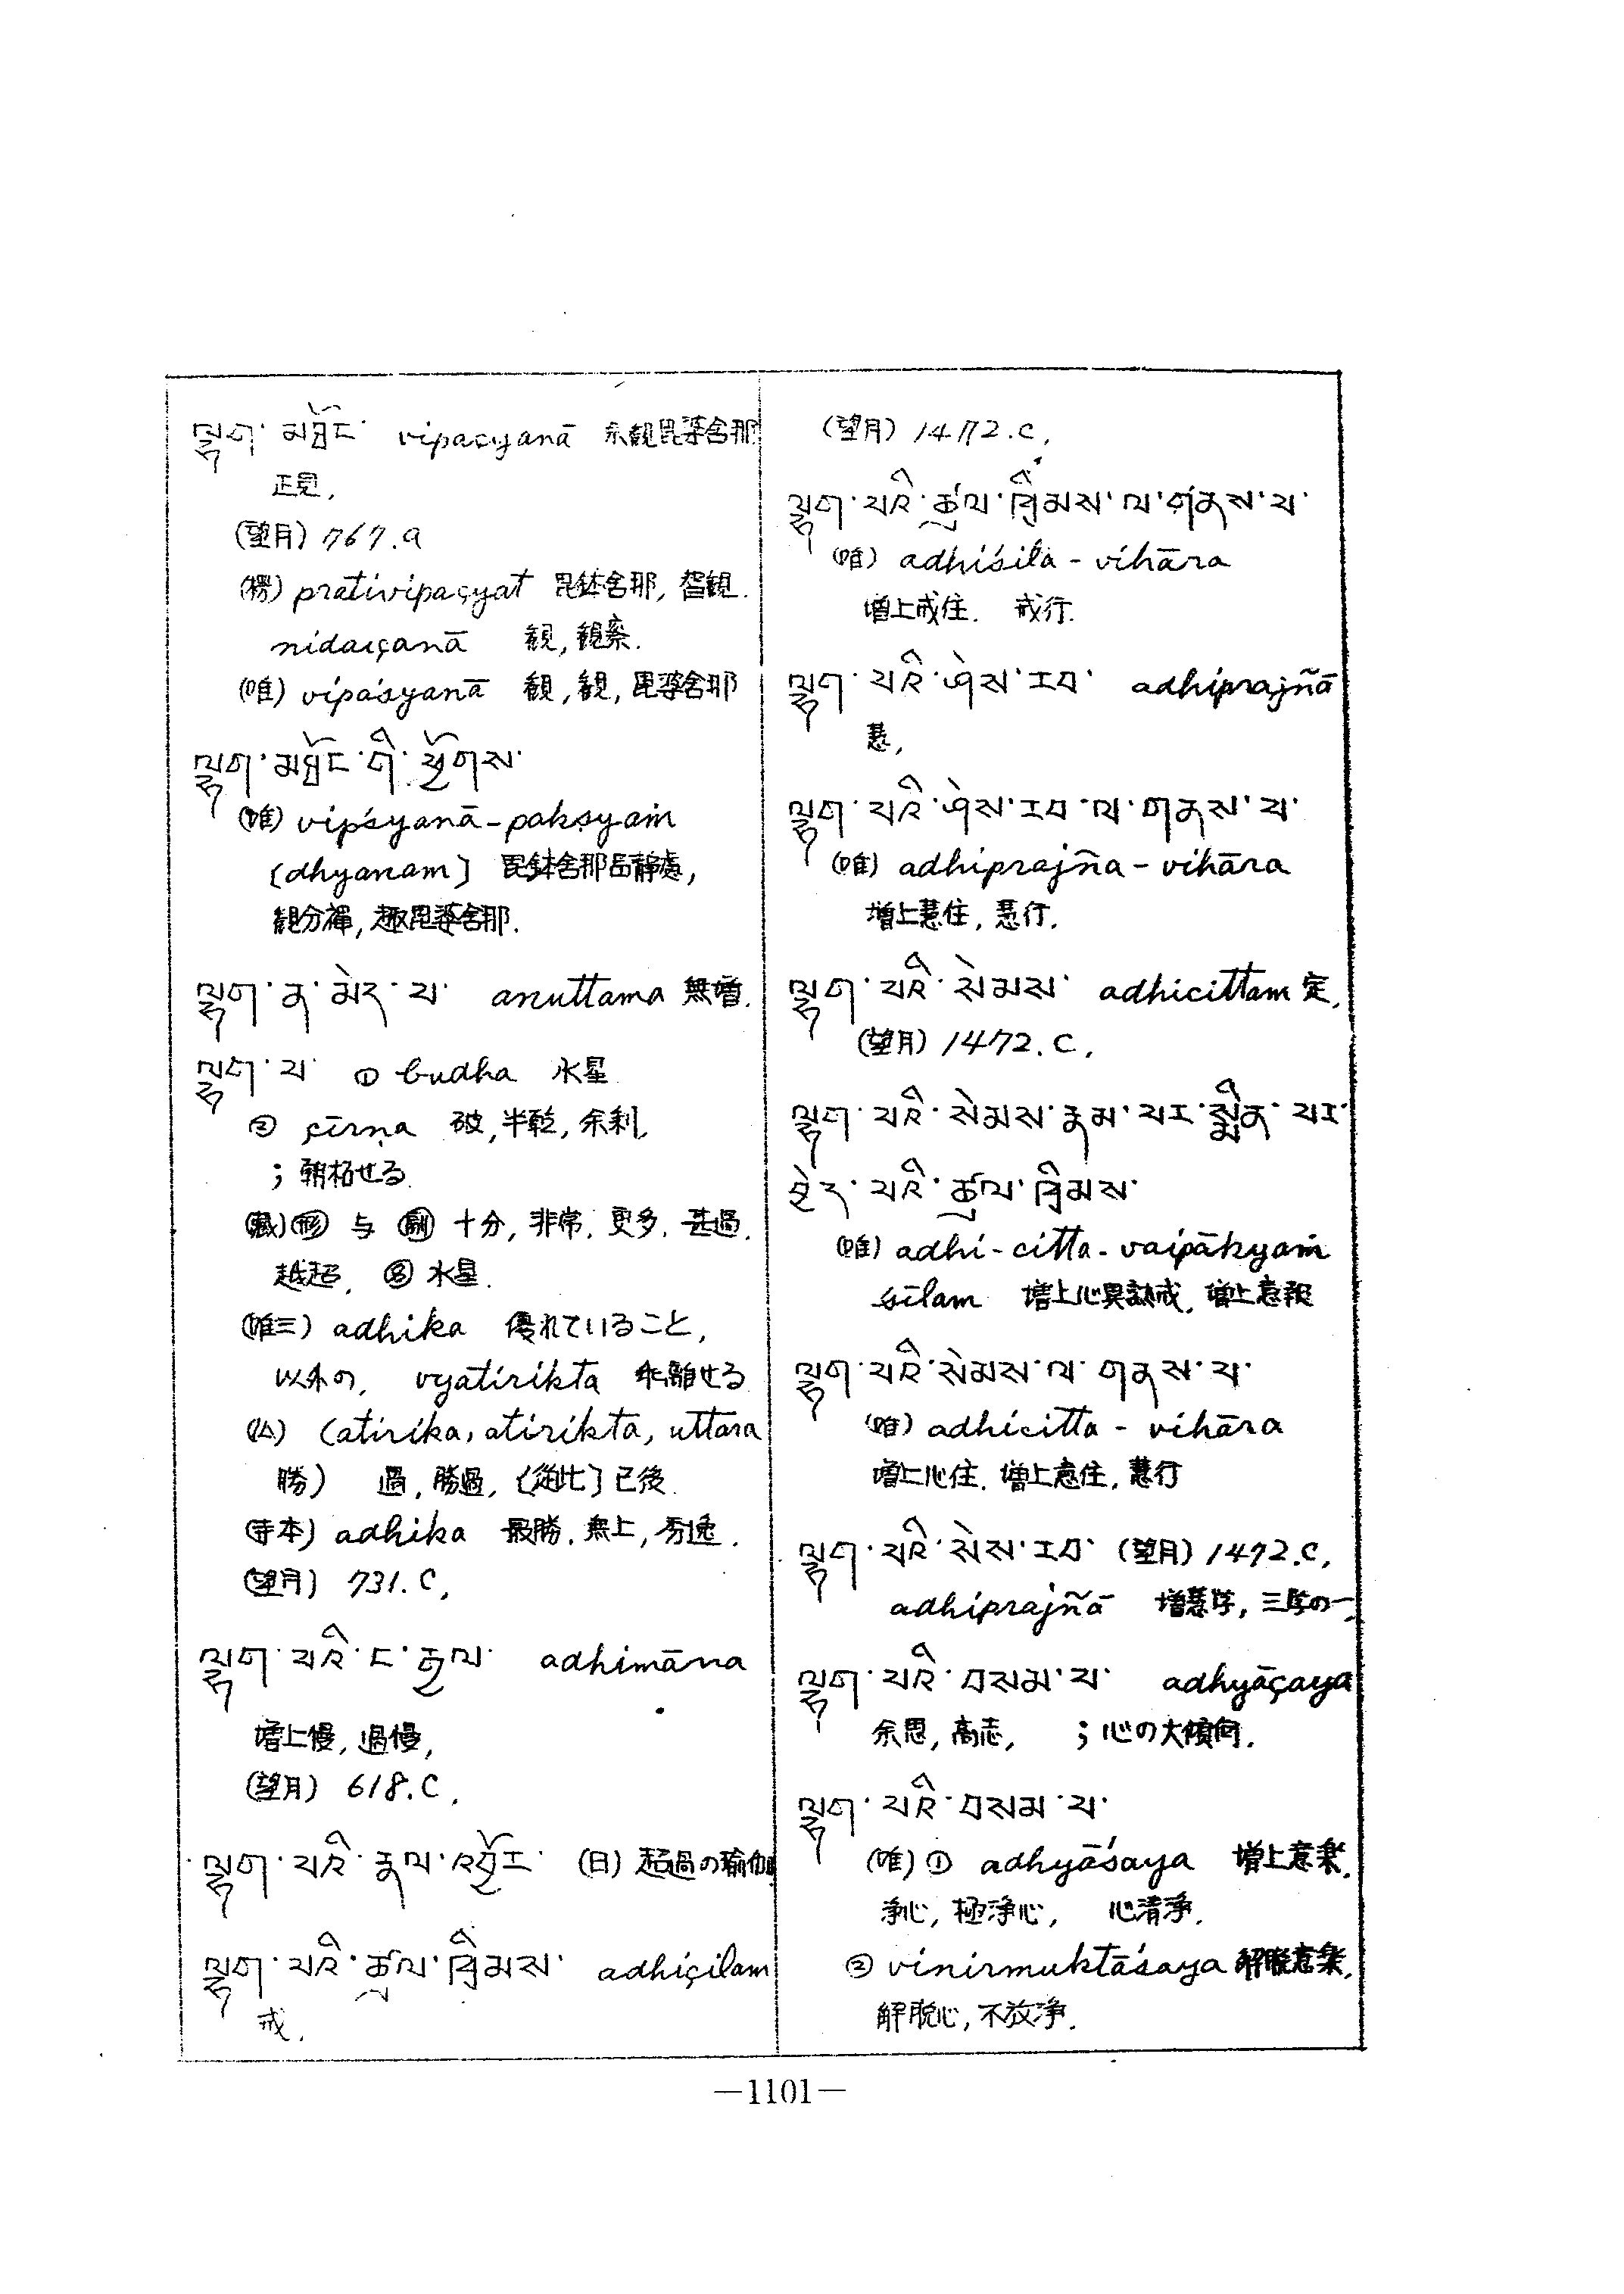 ལྷག་མཐོང་ vipaçyanā 余観毘婆舎那
正見,
(望月) 767.a
(楞) prativipaçyat 毘鉢舎那, 智観.
nidarçanā 観, 観察.
(唯) vipaśyanā 観, 観, 毘婆舎那
ལྷག་མཐོང་གི་ཕྱོགས་
(唯) vipśyanā-pakṣyaṁ
[dhyanam] 毘鉢舎那品静慮,
観分禅, 趣毘婆舎那.
ལྷག་ན་མེད་པ་ anuttama 無増.
ལྷག་པ་ ① budha 水星
② çīrṇa 破, 半乾, 余利,
; 朝枯せる
(蔵) ㊒ 与 ㊖ 十分, 非常. 更多. 甚過.
越超. ㊔ 水星.
(唯三) adhika 優れていること,
以外の, vyatirikta 乖離せる
(仏) (atirika, atirikta, uttara
勝) 過, 勝過, [從此] 已後.
(寺本) adhika 最勝. 無上, 秀逸.
(望月) 731.C,
ལྷག་པའི་ང་རྒྱལ་ adhimāna
増上慢, 過慢,
(望月) 618.C,
ལྷག་པའི་རྣལ་འབྱོར་ (日) 超過の瑜伽
ལྷག་པའི་ཚུལ་ཁྲིམས་ adhiçilam
戒.
(望月) 1472.c,
ལྷག་པའི་ཚུལ་ཁྲིམས་ལ་གནས་པ་
(唯) adhiśila - vihāra
増上戒住. 戒行.
ལྷག་པའི་ཤེས་རབ་ adhiprajñā
慧,
ལྷག་པའི་ཤེས་རབ་ལ་གནས་པ་
(唯) adhiprajña - vihāra
増上慧住, 慧行.
ལྷག་པའི་སེམས་ adhicittam 定,
(望月) 1472.C,
ལྷག་པའི་སེམས་རྣམ་པར་སྨིན་པར་
བྱེད་པའི་ཚུལ་ཁྲིམས་
(唯) adhi-citta-vaipākyaṁ
sīlam 増上心異熟戒, 増上意報
ལྷག་པའི་སེམས་ལ་གནས་པ་
(唯) adhicitta - vihāra
増上心住. 増上意住, 慧行
ལྷག་པའི་སེས་རབ་ (望月) 1472.C,
adhiprajñā 増慧学, 三学の一,
ལྷག་པའི་བསམ་པ་ adhyāçaya
余思, 高志, ; 心の大傾向.
ལྷག་པའི་བསམ་པ་
(唯) ① adhyāśaya 増上意楽.
浄心, 極浄心, 心清浄.
② vinirmuktāśaya 解脱意楽.
解脱心, 不放浄.
—1101—